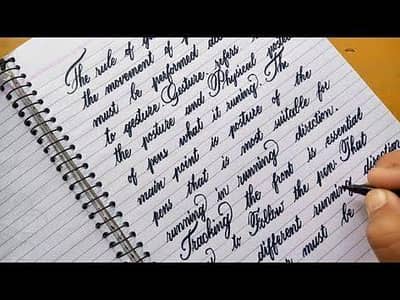 The rule of
the movement of
must be performed
to gesture. Gesture, refers
the posture and Physical
of pens what it runing. The
main point is posture of the
pens that is most suitable for
running in running direction.
Tracking the font is essential
to Follow the pen. That
different running direction
must be